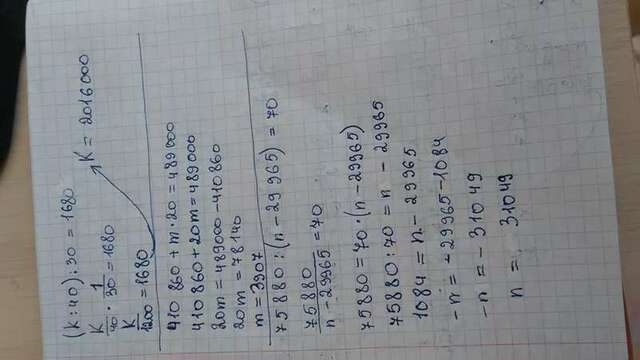 (k:40):30=1680
K/40 · 1/30 = 1680
K/1200 = 1680
K = 2016000
410 860 + m · 20 = 489000
410 860 + 20m = 489000
20m = 489000 - 410860
20m = 78140
m = 3907
75880 : (n - 29 965) = 70
75880/n - 29965 = 70
75880 = 70 · (n - 29965)
75880 : 70 = n - 29965
1084 = n - 29965
-n = -29965 - 1084
-n = - 31049
n = 31049